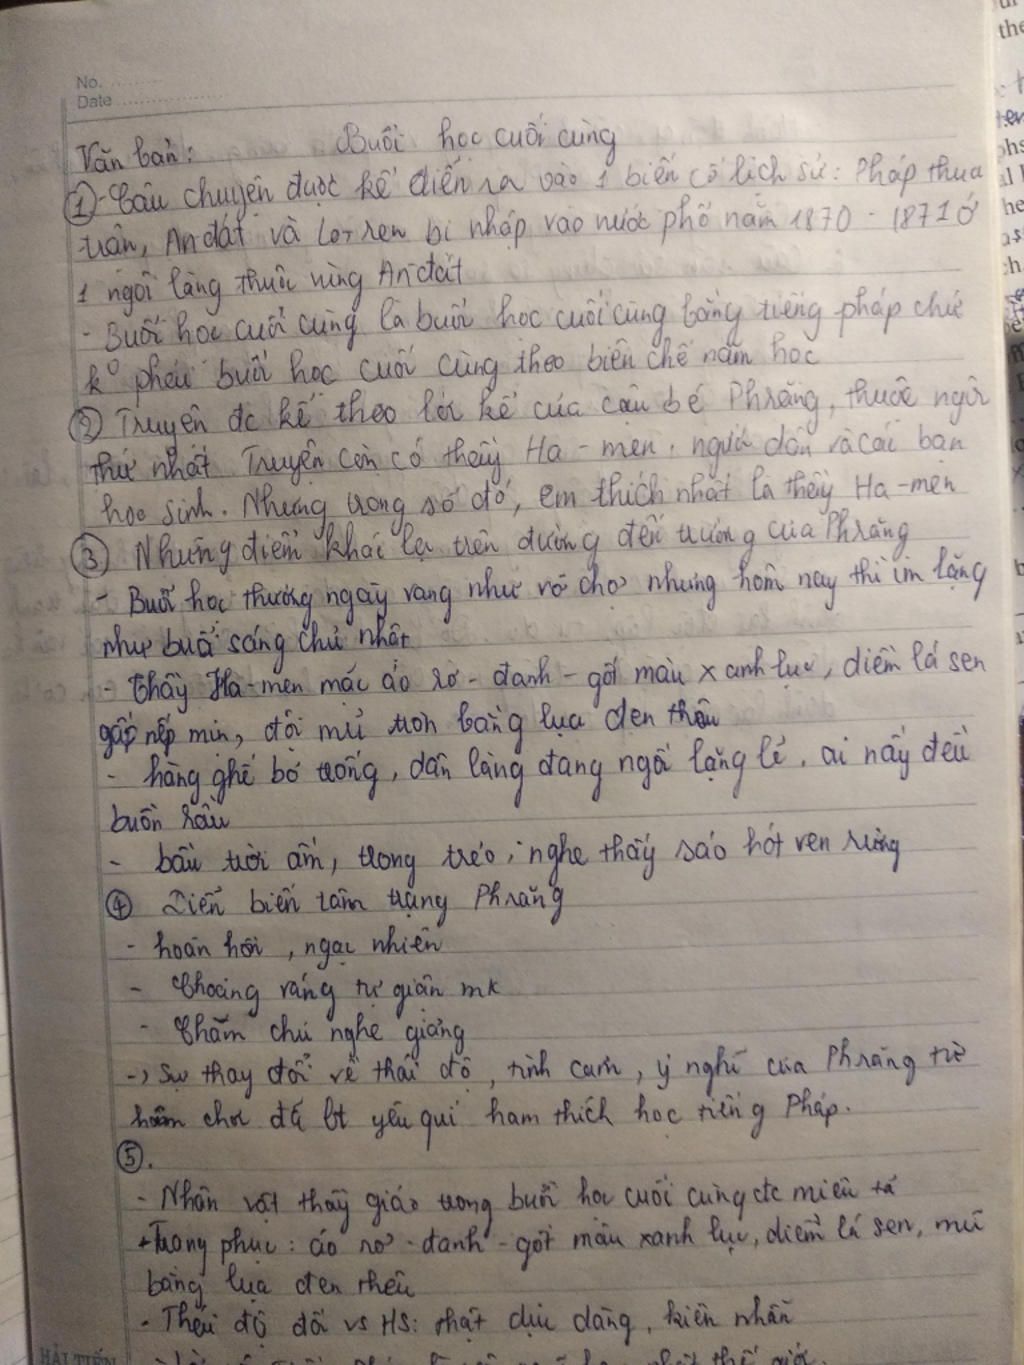 No.
Date
Văn bản: Buổi học cuối cùng
① - Câu chuyện được kể diễn ra vào 1 biến cố lịch sử: Pháp thua
trận, An-dát và Lo-ren bị nhập vào nước phổ năm 1870 - 1871 ở
1 ngôi làng thuộc vùng An-dát
- Buổi học cuối cùng là buổi học cuối cùng bằng tiếng pháp chứ
k° phải buổi học cuối cùng theo biên chế năm học
② Truyện đc kể theo lời kể của cậu bé Phrăng, thuộc ngôi
thứ nhất. Truyện còn có thầy Ha-men, người dân và các bạn
học sinh. Nhưng trong số đó, em thích nhất là thầy Ha-men
③ Những điểm khác lạ trên đường đến trường của Phrăng
- Buổi học thường ngày vang như vỡ chợ nhưng hôm nay thì im lặng
như buổi sáng chủ nhật
- Thầy Ha-men mặc áo rơ-đanh-gốt màu xanh lục, diềm lá sen
gấp nếp mịn, đội mũ tròn bằng lụa đen thêu
- hàng ghế bỏ trống, dân làng đang ngồi lặng lẽ, ai nấy đều
buồn rầu
- bầu trời ấm, trong trẻo, nghe thấy sáo hót ven rừng
④ Diễn biến tâm trạng Phrăng
- hoãn hồi, ngạc nhiên
- Choáng váng tự giận mk
- Chăm chú nghe giảng
-> Sự thay đổi về thái độ, tình cảm, ý nghĩ của Phrăng từ
ham chơi đã bt yêu quí ham thích học tiếng Pháp.
⑤.
- Nhân vật thầy giáo trong buổi học cuối cùng đc miêu tả
+ Trang phục: áo rơ-đanh-gốt màu xanh lục, diềm lá sen, mũ
bằng lụa đen thêu
- Thái độ đối vs HS: thật dịu dàng, kiên nhẫn
HẢI TIẾN